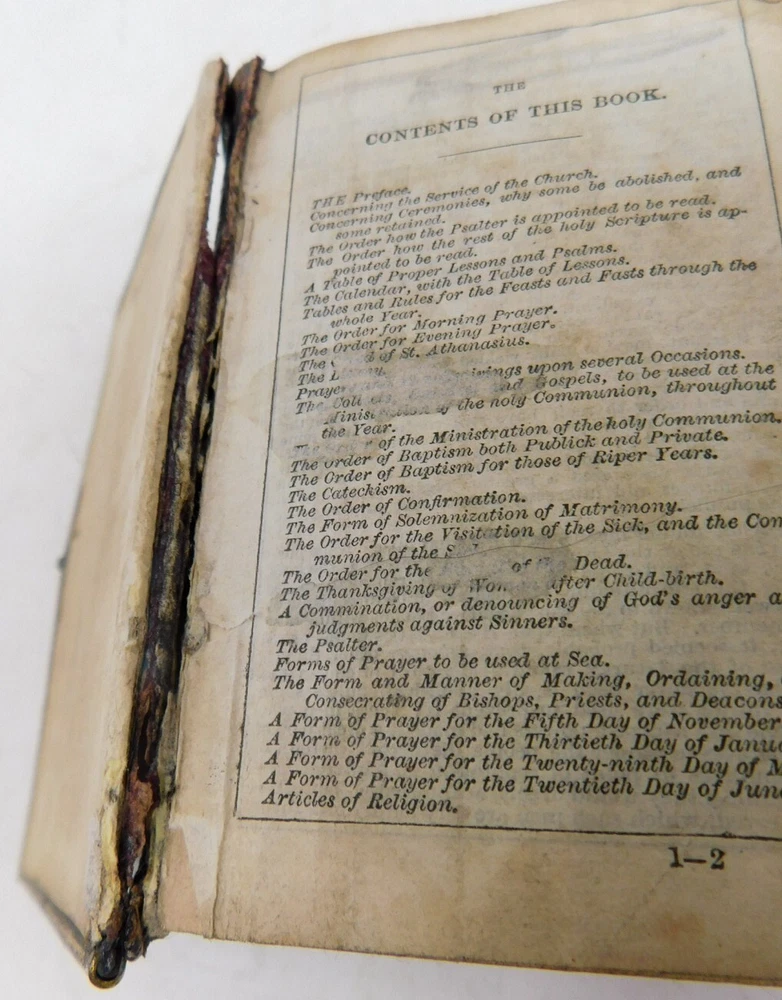 THE
CONTENTS OF THIS BOOK.
THE Preface.
Concerning the Service of the Church.
Concerning Ceremonies, why some be abolished, and
some retained.
The Order how the Psalter is appointed to be read.
The Order how the rest of the holy Scripture is ap-
pointed to be read.
A Table of Proper Lessons and Psalms.
The Calendar, with the Table of Lessons.
Tables and Rules for the Feasts and Fasts through the
whole Year.
The Order for Morning Prayer.
The Order for Evening Prayer.
The of St. Athanasius.
The
upon several Occasions.
The Gospels, to be used at the
of the holy Communion, throughout
the Year.
of the Ministration of the holy Communion.
The Order of Baptism both Publick and Private.
The Order of Baptism for those of Riper Years.
The Catechism.
The Order of Confirmation.
The Form of Solemnization of Matrimony.
The Order for the Visitation of the Sick, and the Com
munion of the
The Order for the of Dead.
The Thanksgiving of after Child-birth.
A Commination, or denouncing of God's anger a
judgments against Sinners.
The Psalter.
Forms of Prayer to be used at Sea.
The Form and Manner of Making, Ordaining,
Consecrating of Bishops, Priests, and Deacons
A Form of Prayer for the Fifth Day of November
A Form of Prayer for the Thirtieth Day of Janu
A Form of Prayer for the Twenty-ninth Day of M
A Form of Prayer for the Twentieth Day of Jun
Articles of Religion.
1—2